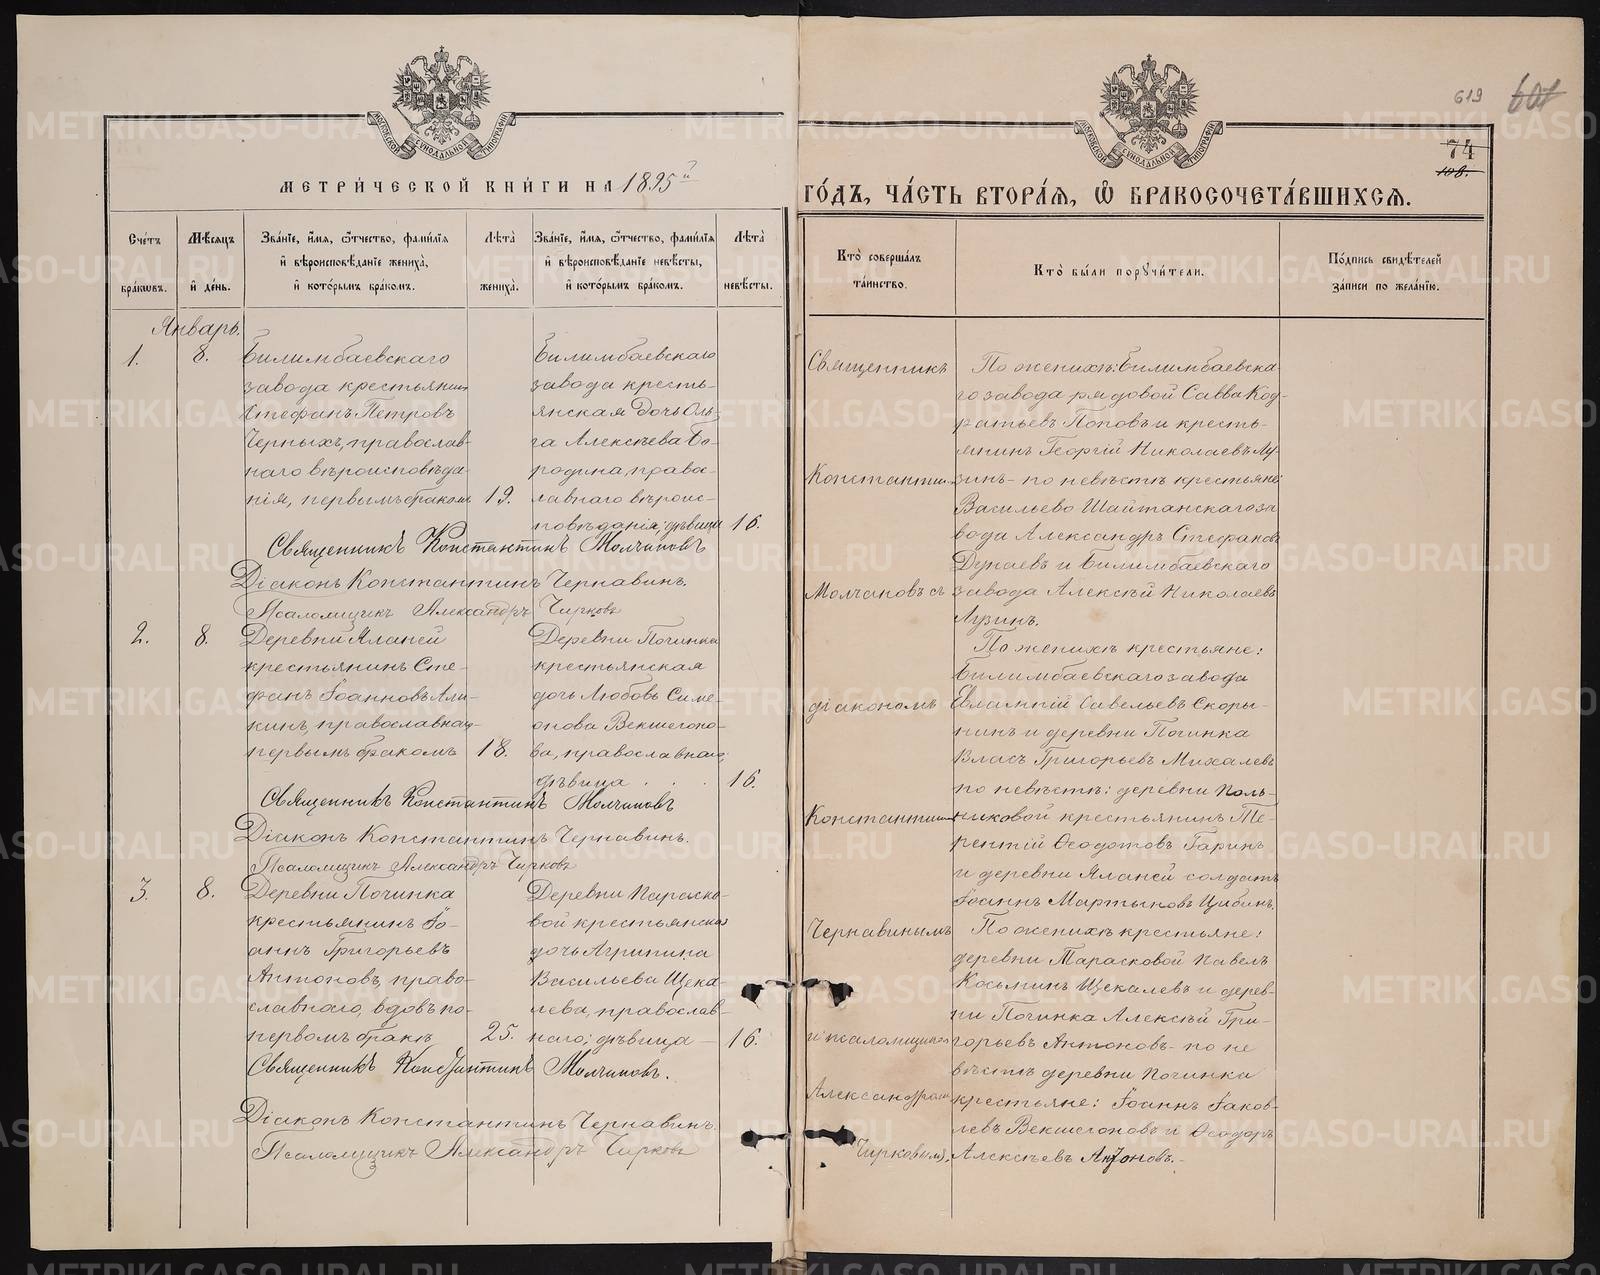 МОСКОВСКОЙ СУНОДАЛЬНОЙ ТИПОГРАФІИ
МЕТРИ́ЧЕСКОЙ КНИ́ГИ НА 1895й
Сче́тъ бра́кѡвъ.
Мѣ́сяцъ и҆ де́нь.
Зва́нїе, и҆́мѧ, ѻ҆́тчество, фами́лїѧ
и҆ вѣроисповѣ́данїе жениха̀,
и҆ кото́рымъ бра́комъ.
Лѣ́та жениха̀.
Зва́нїе, и҆́мѧ, ѻ҆́тчество, фами́лїѧ
и҆ вѣроисповѣ́данїе невѣ́сты,
и҆ кото́рымъ бра́комъ.
Лѣ́та невѣ́сты.
Январь.
1.
8.
Билимбаевскаго
завода крестьянинъ
Стефанъ Петровъ
Черныхъ, православ-
наго вѣроисповѣда-
нія, первымъ бракомъ
19.
Билимбаевскаго
завода кресть-
янская дочь Оль-
га Алексѣева Бо-
родина, право-
лавнаго вѣроис-
повѣданія; дѣвица
16.
Священникъ Константинъ Молчановъ
Діаконъ Константинъ Чернавинъ.
Псаломщикъ Александръ Чирковъ
2.
8.
Деревни Яланей
крестьянинъ Сте-
фанъ Іоанновъ Али-
кинъ, православнаго
первымъ бракомъ
18.
Деревни Починка
крестьянская
дочь Любовь Симе-
онова Векшегоно-
ва, православнаго,
дѣвица . .
16.
Священникъ Константинъ Молчановъ
Діаконъ Константинъ Чернавинъ.
Псаломщикъ Александръ Чирковъ
3.
8.
Деревни Починка
крестьянинъ Іо-
аннъ Григорьевъ
Антоновъ, право-
славнаго, вдовъ по
первомъ бракѣ
25.
Деревни Параско-
вой крестьянская
дочь Агрипина
Васильева Щека-
лева, православ-
наго; дѣвица
16.
Священникъ Константинъ Молчановъ.
Діаконъ Константинъ Чернавинъ.
Псаломщикъ Александръ Чирковъ
МОСКОВСКОЙ СУНОДАЛЬНОЙ ТИПОГРАФІИ
619
601
74
108.
ГО́ДЪ, ЧА́СТЬ ВТОРА́Ѧ, Ѽ БРАКОСОЧЕТА́ВШИХСѦ.
Кто̀ соверша́лъ
та́инство.
Кто̀ бы́ли порꙋчи́тели.
По́дпись свидѣ́телей
за́писи по жела́нїю.
Священникъ
Константинъ
Молчановъ съ
діакономъ
Константиномъ
Чернавинымъ
и псаломщикомъ
Александромъ
Чирковымъ.
По женихѣ: Билимбаевска
го завода рядовой Савва Код-
ратьевъ Поповъ и кресть-
янинъ Георгій Николаевъ Лу-
зинъ - по невѣстѣ крестьяне:
Васильево Шайтанскаго за
вода Александръ Стефановъ
Дунаевъ и Билимбаевскаго
завода Алексѣй Николаевъ
Лузинъ.
По женихѣ крестьяне:
Билимбаевскаго завода
Евлампій Савельевъ Скоры-
нинъ и деревни Починка
Власъ Григорьевъ Михалевъ
по невѣстѣ: деревни Коль-
никовой крестьянинъ Те-
рентій Ѳеодотовъ Гаринъ
и деревни Яланей солдатъ
Іоаннъ Мартыновъ Цибинъ.
По женихѣ крестьяне:
деревни Тарасковой Павелъ
Косьминъ Щекалевъ и дерев-
ни Починка Алексѣй Гри-
горьевъ Антоновъ - по не
вѣстѣ деревни Починка
крестьяне: Іоаннъ Іаков-
левъ Векшегоновъ и Ѳеодоръ
Алексѣевъ Антоновъ. -
METRIKI.GASO-URAL.RU